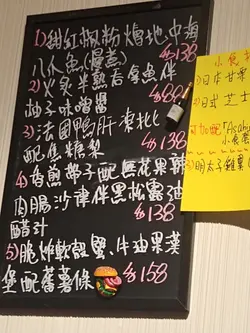 1) 甜紅椒粉燴地中海
八爪魚(慢煮) $138
2) 火炙半熟吞拿魚伴
柚子味噌醬 $88
3) 法國鴨肝凍批
配焦糖梨 $138
4) 香煎帶子配無花果韓
肉腸沙律伴黑松露油
醋汁 $138
5) 脆炸軟殼蟹、牛油果漢
堡配蕃薯條 $158
1) 日本甘栗
2) 日式芝士
可加配 "Asahi
3) 明太子雞